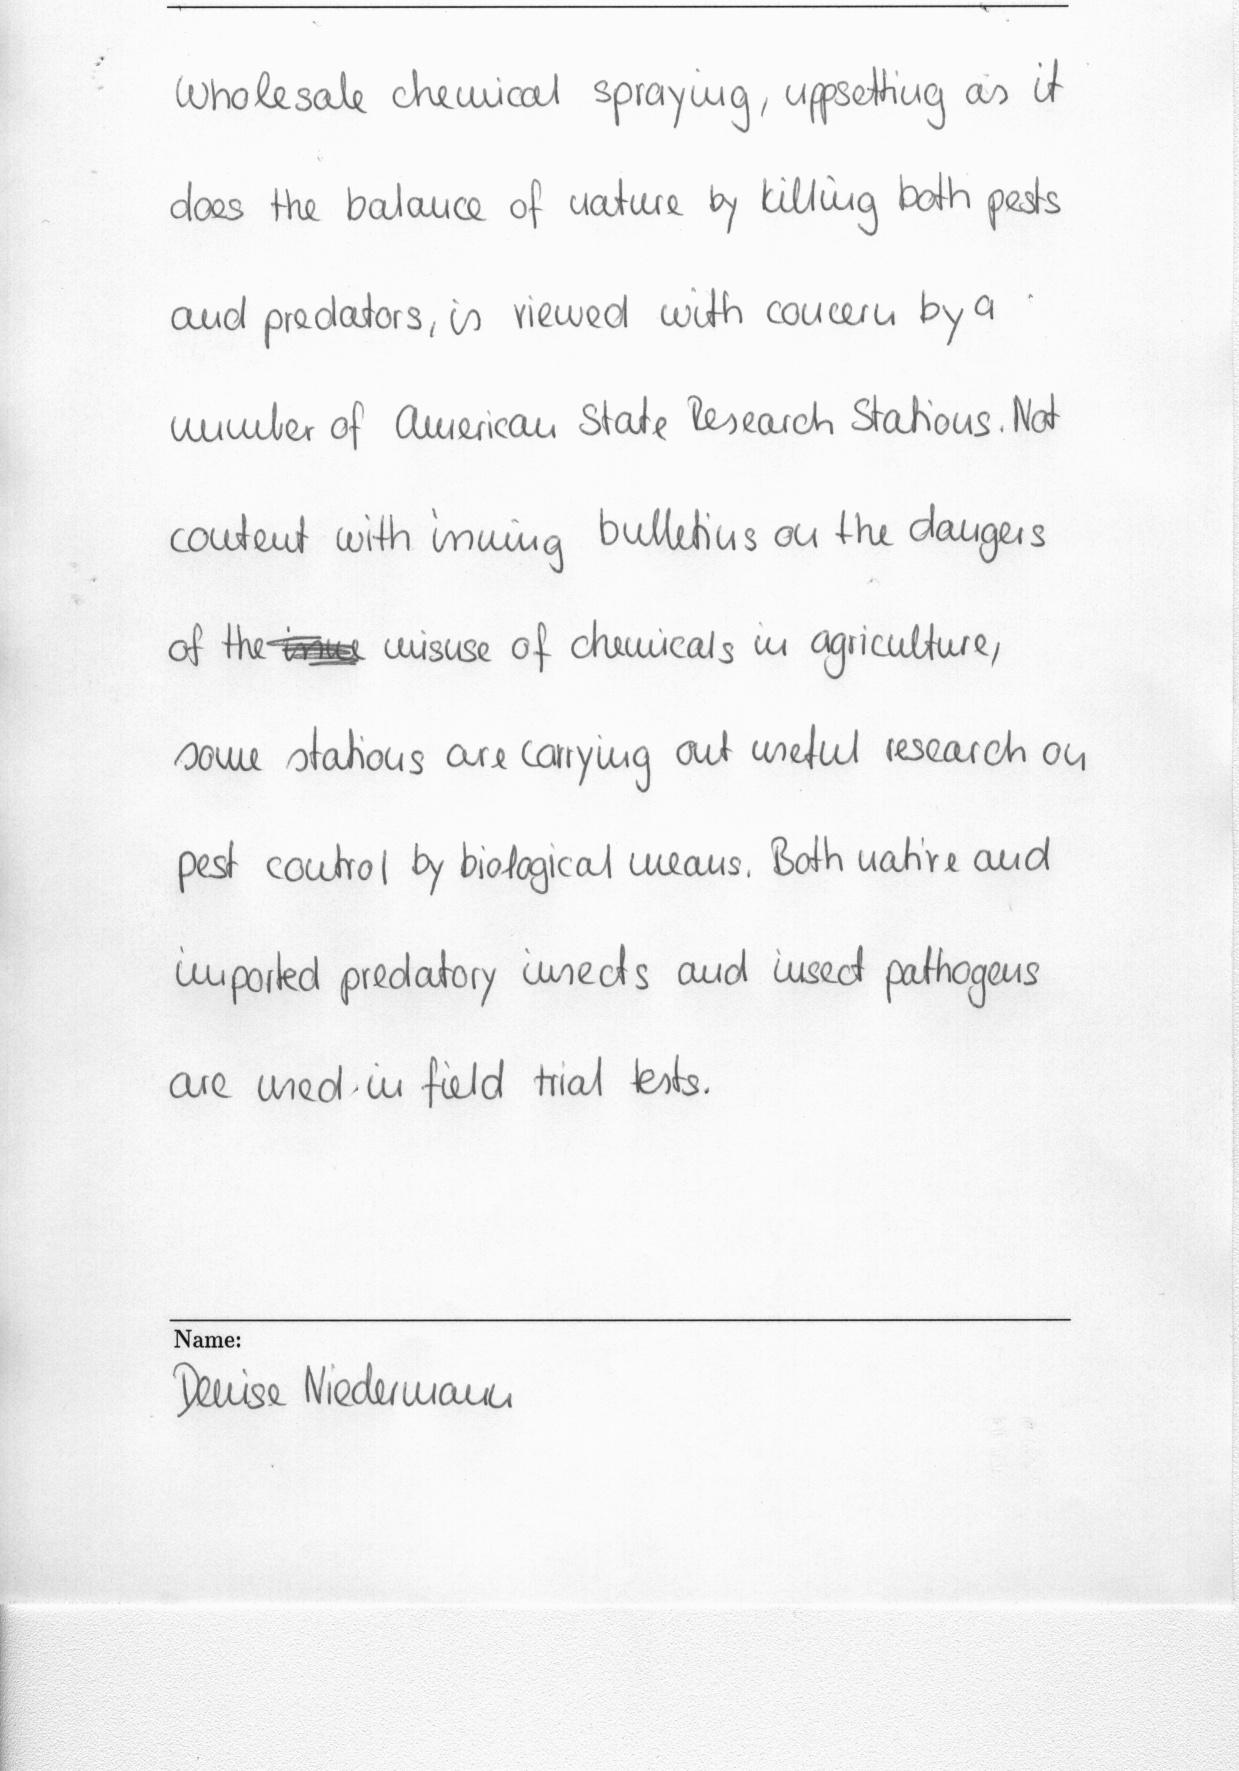 Wholesale chemical spraying, uppsetting as it
does the balance of nature by killing both pests
and predators, is viewed with concern by a
number of American State Research Stations. Not
content with issuing bulletins on the dangers
of the misuse of chemicals in agriculture,
some stations are carrying out useful research on
pest control by biological means. Both native and
imported predatory insects and insect pathogens
are used in field trial tests.
Name:
Denise Niedermann